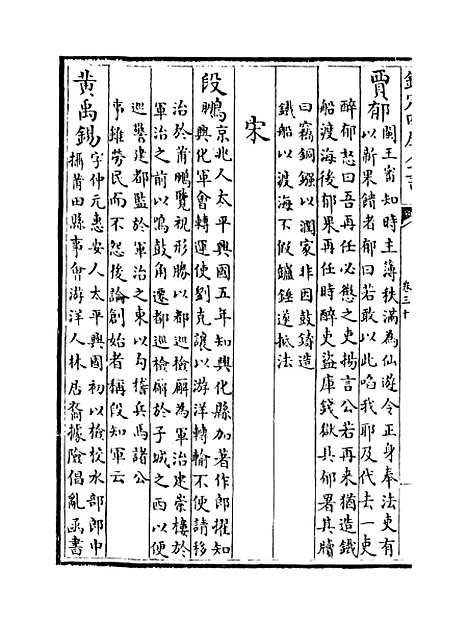 欽定四庫全書
卷三十
賈郁
閩王審知時主簿秩滿為仙遊令正身奉法吏有
以新果饋者郁曰若敢以此啗我耶及代去一吏
醉郁怒曰吾再任必懲之吏揚言公若再來猶造鐵
船渡海後郁果再任時醉吏盜庫錢獄具郁署其牘
曰竊銅鏹以潤家非因鼓鑄造
鐵船以渡海不假鑪錘遂抵法
宋
段鵬
京兆人太平興國五年知興化縣加著作郎擢知
興化軍會轉運使劉克讓以游洋轉輸不便請移
治於莆鵬覽視形勝以都巡檢廨為軍治建崇樓於
軍治之前以鳴鼓角遷都巡檢廨於子城之西以便
巡警建都監於軍治之東以勾稽兵馬諸公
事雖勞民而不怨後論創始者稱段知軍云
黄禹錫
字仲元惠安人太平興國初以檢校水部郎中
攝莆田縣事會游洋人林居裔據險倡亂函書